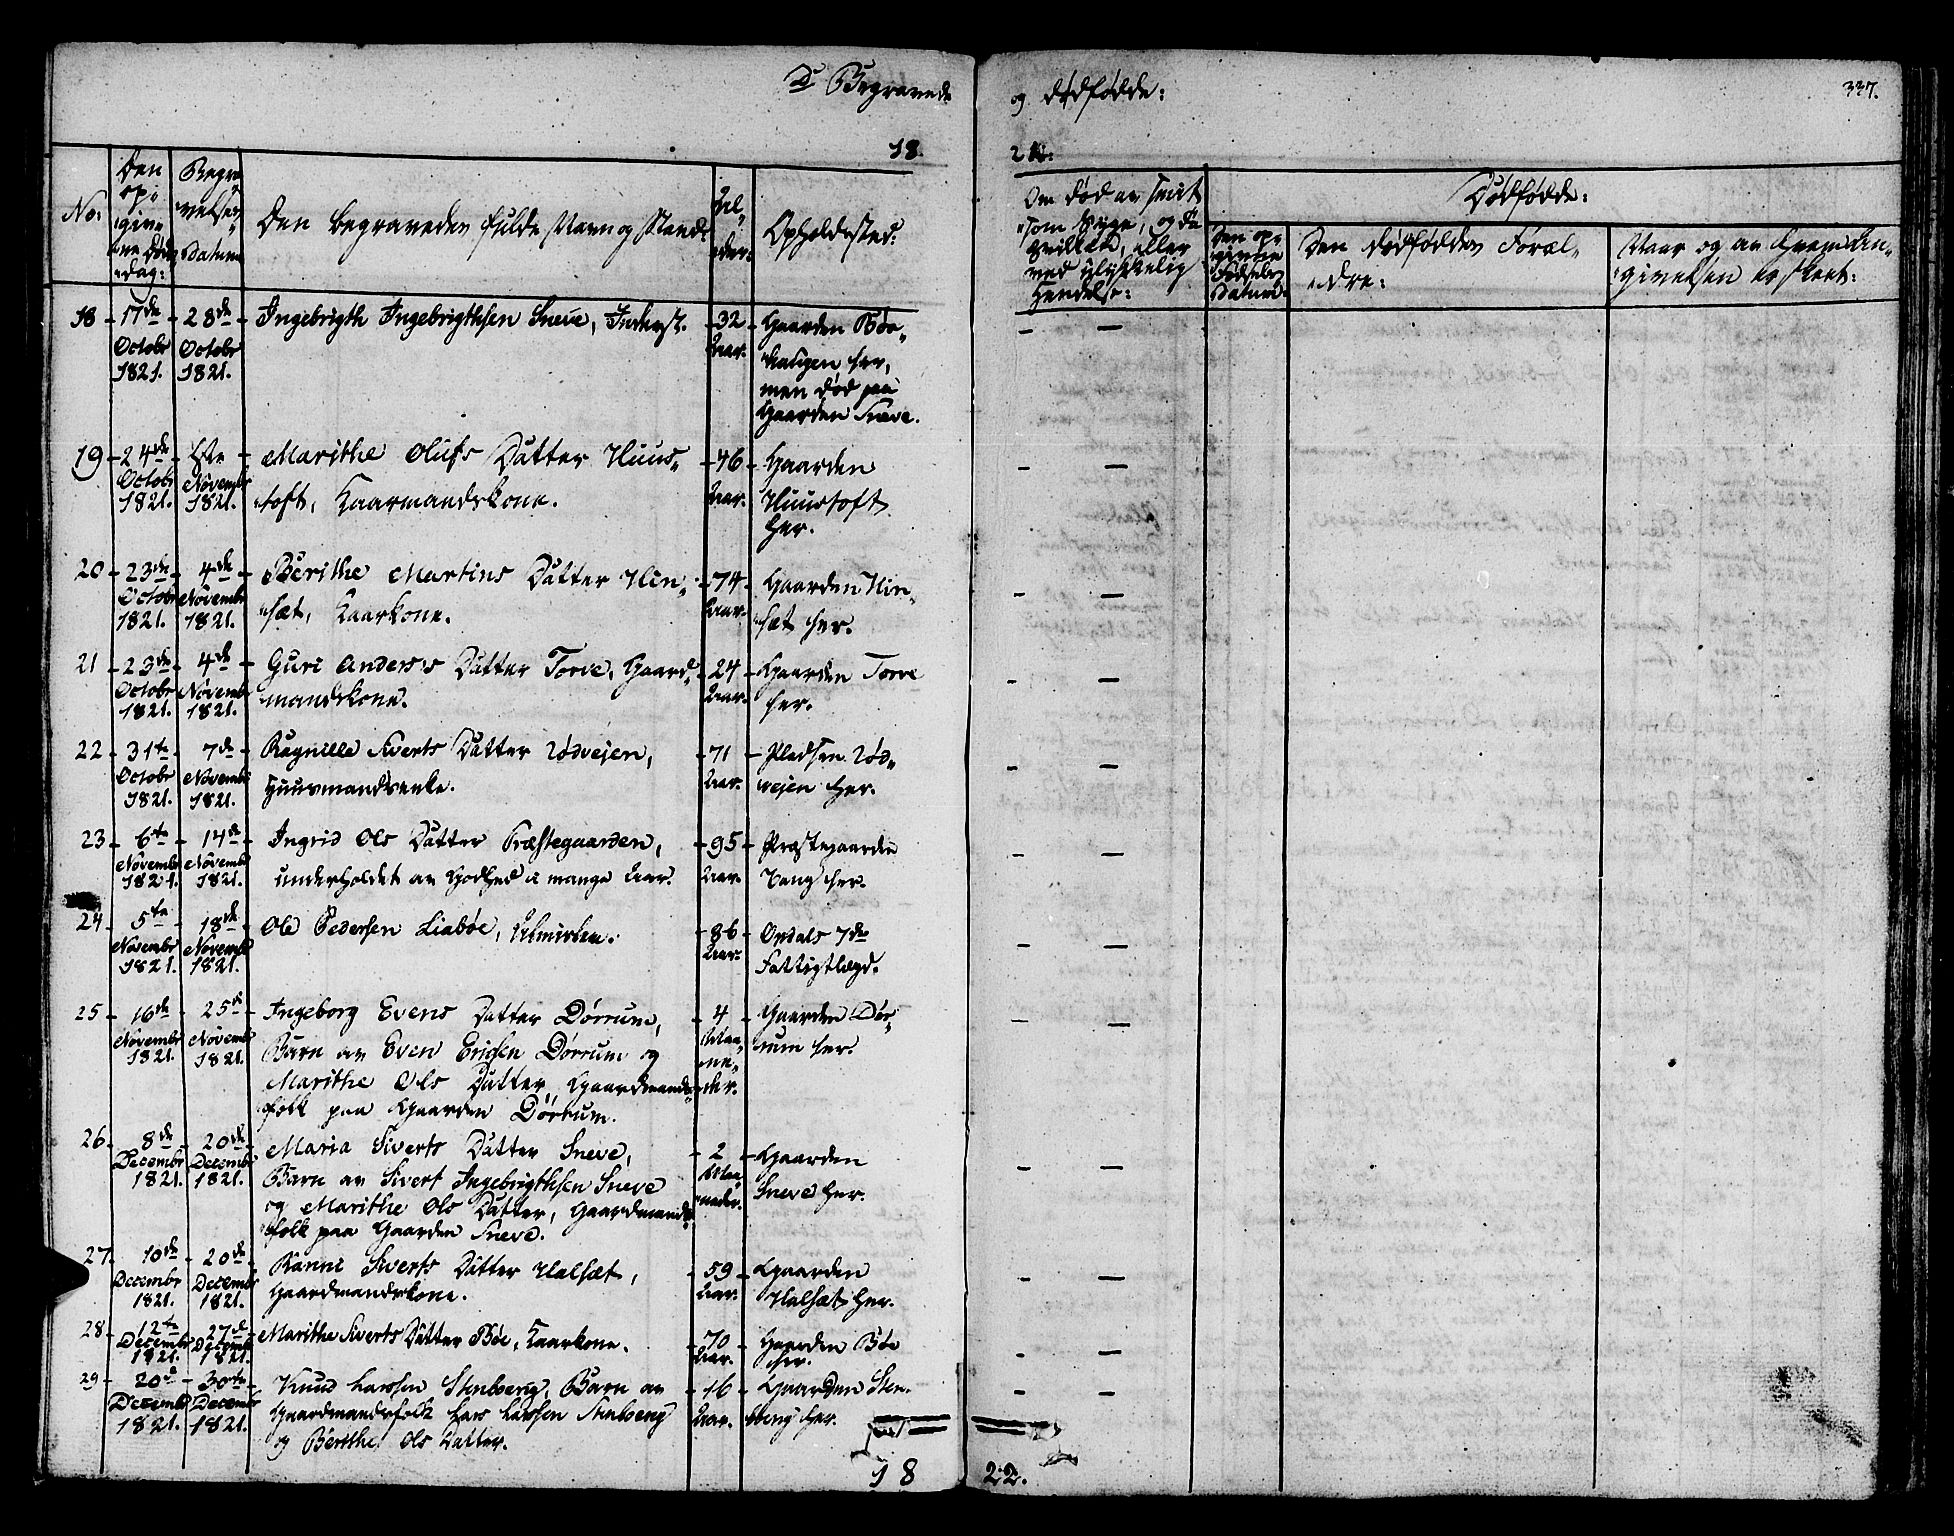 D Begravede
og dødfødde:
337.
18
21.
No:
Den
op-
giv-
ne Døds
dag:
Begra-
velses
Datum
Den begravedes fulde Navn og Stand:
Al-
der:
Opholdssted:
Om død av smit-
som Syge, og da
hvilken, eller
ved ulykkelig
Hendelse:
Dødfødde:
Den op-
givne
Fødsels
Datum:
Den dødføddes Foræl-
dre:
Naar og av hvem An-
givelsen er skeet:
18 17de October 1821. 28de October 1821. Ingebrigth Ingebrigthsen Sneve, Inderst. 32 Aar. Gaarden Bøe-
haugen her,
men død paa
Gaarden Sneve.
19 24de October 1821. 1ste November 1821. Marithe Olufs Datter Huus-
toft, Kaarmandskone. 46 Aar. Gaarden
Huustoft
her.
20 23de October 1821. 4de November 1821. Berithe Martins Datter Hin-
sæt, Kaarkone. 74 Aar. Gaarden Hin-
sæt her.
21 23de October 1821. 4de November 1821. Guri Anders's Datter Torve, Gaard-
mandskone. 24 Aar. Gaarden Torve
her.
22 31te October 1821. 7de November 1821. Ragnille Siverts Datter Rødvejen,
Huusmandsenke. 71 Aar. Pladsen Rød-
vejen her.
23 6te November 1821. 14de November 1821. Ingrid Ols Datter Præstegaarden,
underholdet av Godhed i mange Aar. 95 Aar. Præstegaarden
Vang her.
24 5te November 1821. 18de November 1821. Ole Pedersen Liabøe, Almissen. 86 Aar. Opdals 7de
Fattiglægd.
25 16de November 1821. 25de November 1821. Ingeborg Evens Datter Dørrum,
Barn av Even Ericsen Dørrum og
Marithe Ols Datter, Gaardmands-
folk paa Gaarden Dørrum. 4 Maa-
ne-
der. Gaarden Dør-
rum her.
26 8de December 1821. 20de December 1821. Maria Siverts Datter Sneve,
Barn av Sivert Ingebrigthsen Sneve
og Marithe Ols Datter, Gaardmands-
folk paa Gaarden Sneve. 2 Maa-
neder. Gaarden
Sneve her.
27 10de December 1821. 20de December 1821. Ranni Siverts Datter Halsæt,
Gaardmandskone. 59 Aar. Gaarden
Halsæt her.
28 12te December 1821. 27de December 1821. Marithe Siverts Datter Bøe, Kaarkone. 70 Aar. Gaarden Bøe
her.
29 20de December 1821. 30te December 1821. Knud Larssen Stenboeng, Barn av
Gaardmandsfolk Lars Larssen Stenboeng
og Berithe Ols Datter. 16 Aar. Gaarden Sten-
boeng her.
18
22.